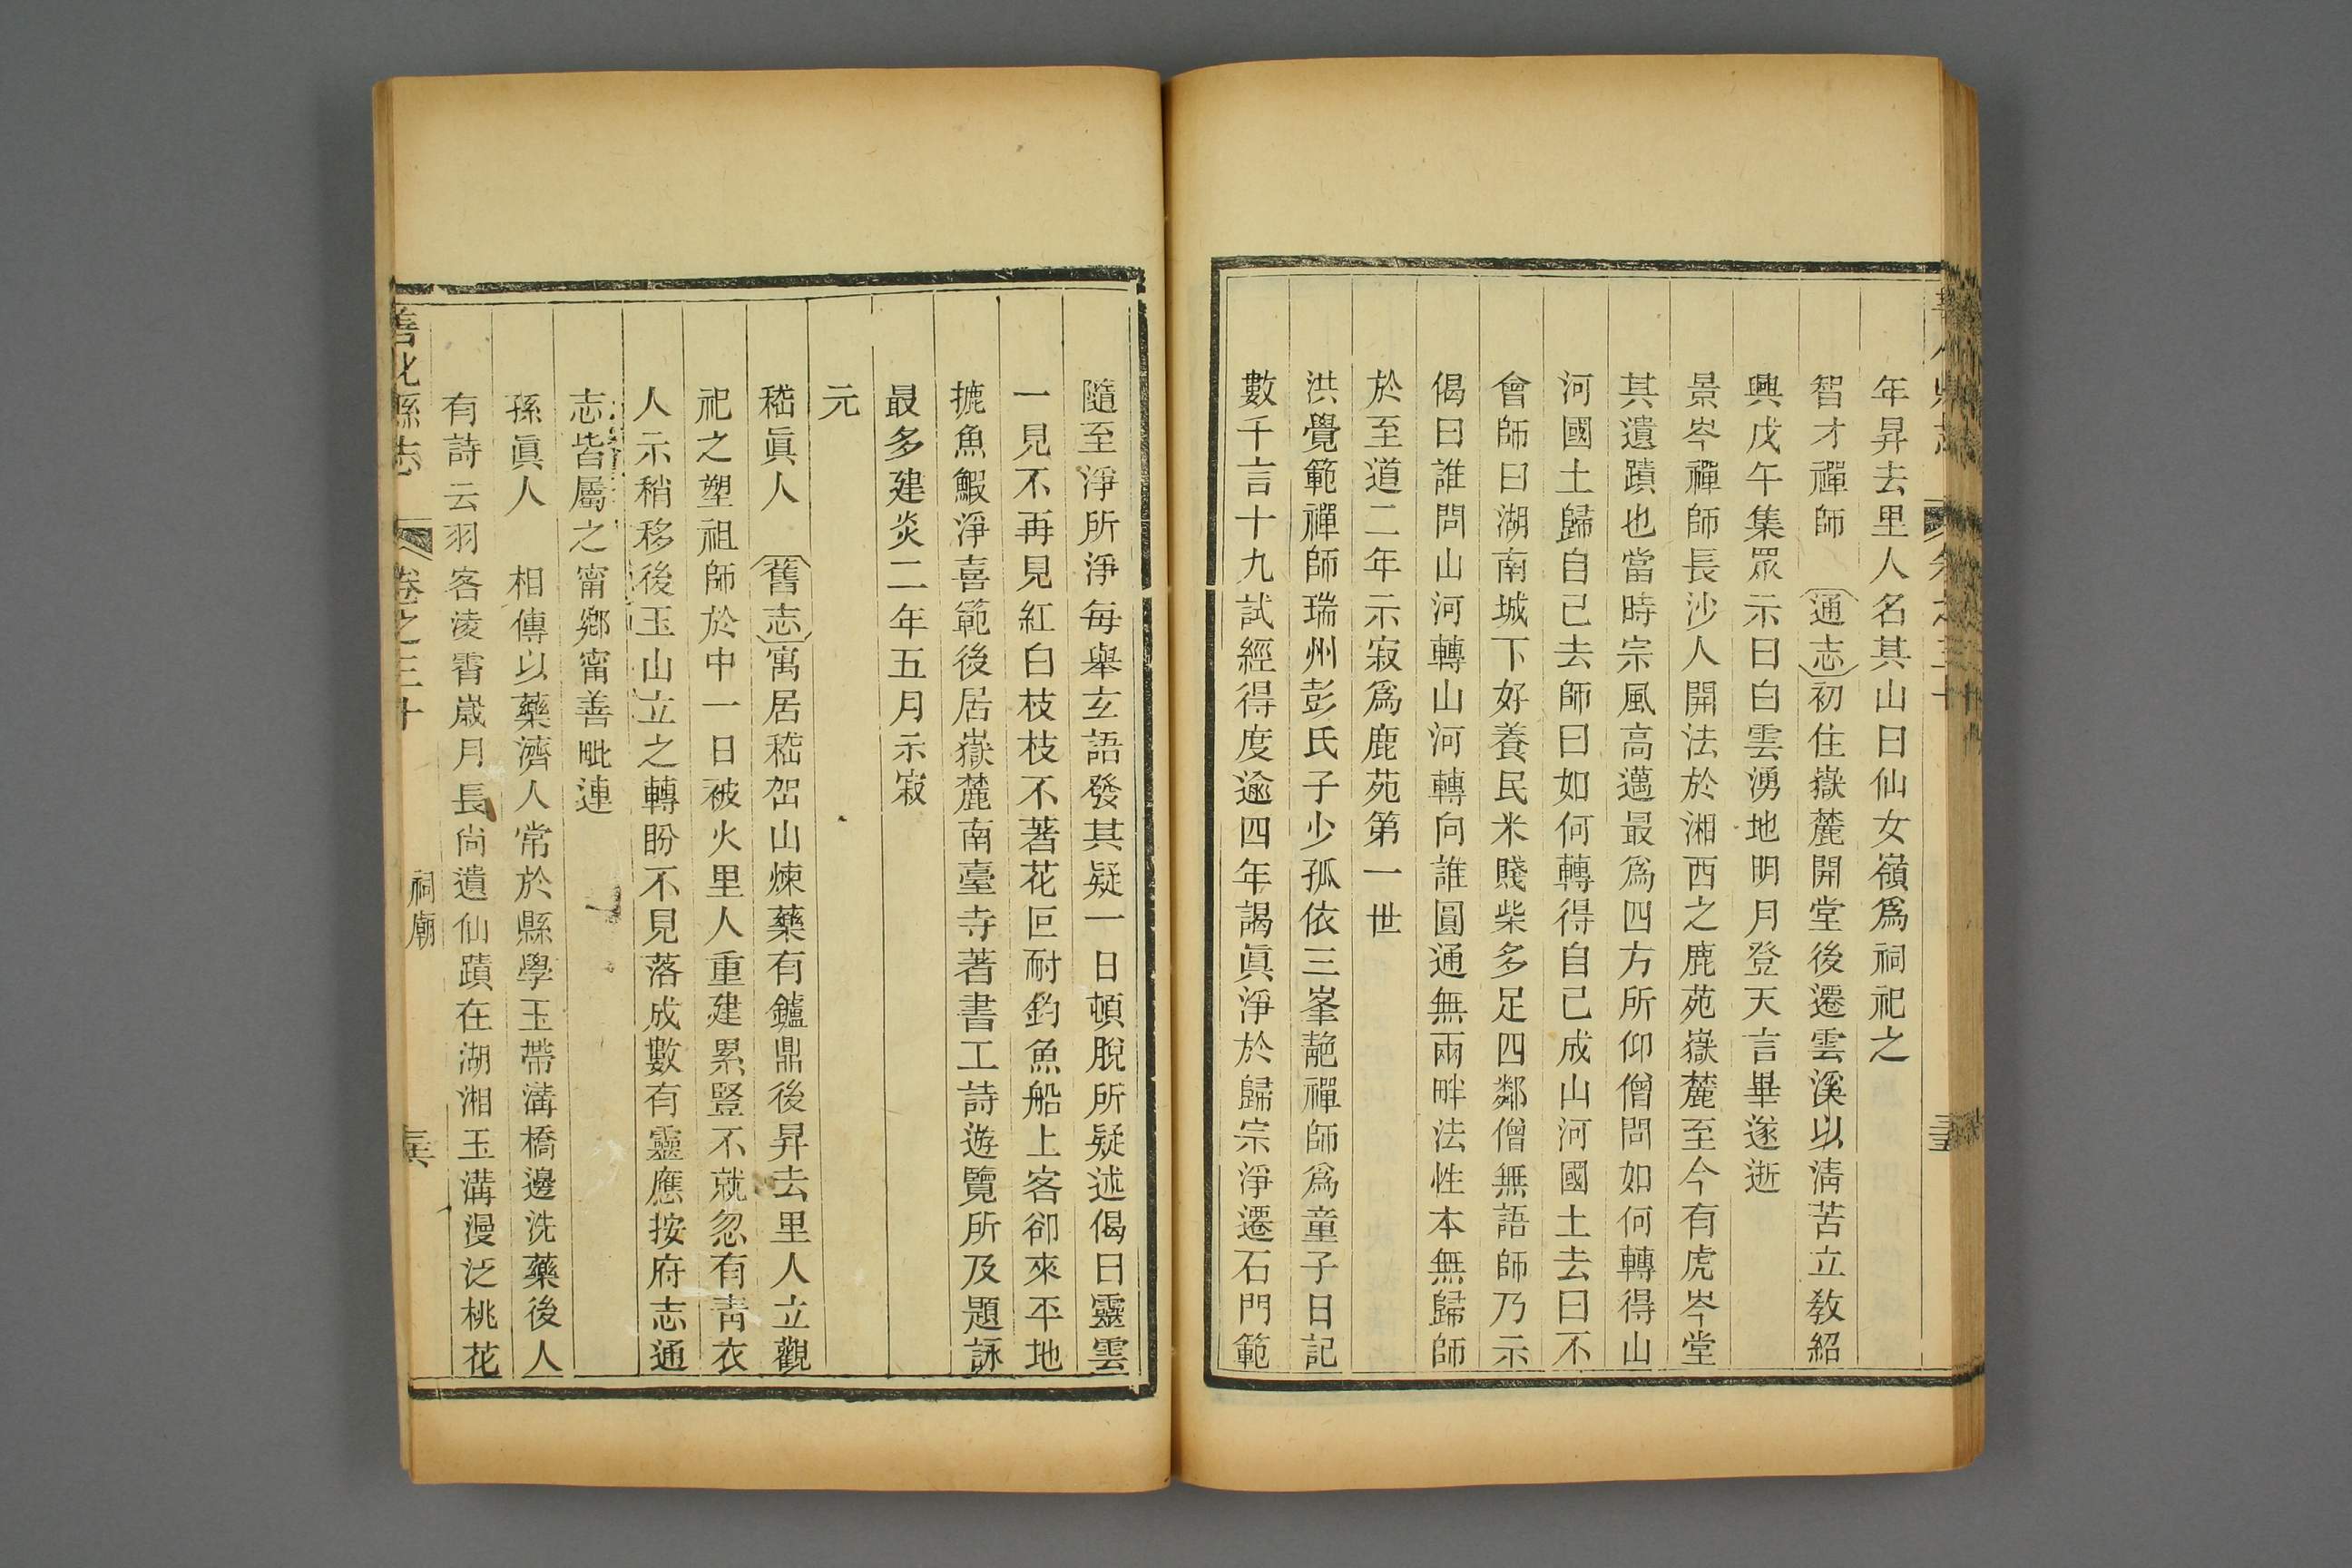 年昇去里人名其山曰仙女嶺爲祠祀之
智才禪師 通志初住嶽麓開堂後遷雲溪以淸苦立敎紹
興戊午集眾示曰白雲湧地明月登天言畢遂逝
景岑禪師長沙人開法於湘西之鹿苑嶽麓至今有虎岑堂
其遺蹟也當時宗風高邁最爲四方所仰僧問如何轉得山
河國土歸自己去師曰如何轉得自己成山河國土去曰不
會師曰湖南城下好養民米賤柴多足四鄰僧無語師乃示
偈曰誰問山河轉山河轉向誰圓通無兩畔法性本無歸師
於至道二年示寂爲鹿苑第一世
洪覺範禪師瑞州彭氏子少孤依三峯靘禪師爲童子日記
數千言十九試經得度逾四年謁眞淨於歸宗淨遷石門範
隨至淨所淨每舉玄語發其疑一日頓脫所疑述偈曰靈雲
一見不再見紅白枝枝不著花叵耐釣魚船上客卻來平地
摝魚鰕淨喜範後居嶽麓南臺寺著書工詩遊覽所及題詠
最多建炎二年五月示寂
元
嵇眞人 舊志寓居嵇岊山煉藥有鑪鼎後昇去里人立觀
祀之塑祖師於中一日被火里人重建累豎不就忽有靑衣
人示稍移後玉山立之轉盼不見落成數有靈應按府志通
志皆屬之甯鄉甯善毗連
孫眞人 相傳以藥濟人常於縣學玉帶溝橋邊洗藥後人
有詩云羽客淩霄歲月長尙遺仙蹟在湖湘玉溝漫泛桃花
善化縣志 卷之三十 祠廟